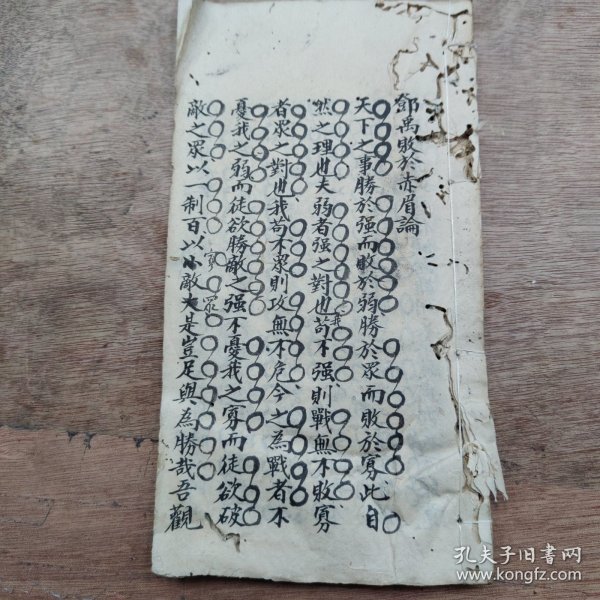 鄧禹敗於赤眉論
天下之事勝於强而敗於弱勝於眾而敗於寡此自
然之理也夫弱者强之對也苟不强則戰無不敗寡
我
者眾之對也我苟不眾則攻無不危今之為戰者不
憂我之弱而徒欲勝敵之强不憂我之寡而徒欲破
敵之眾以一制百以小敵大是豈足與為勝哉吾觀
寡 眾
孔夫子旧书网
www.kongfz.com